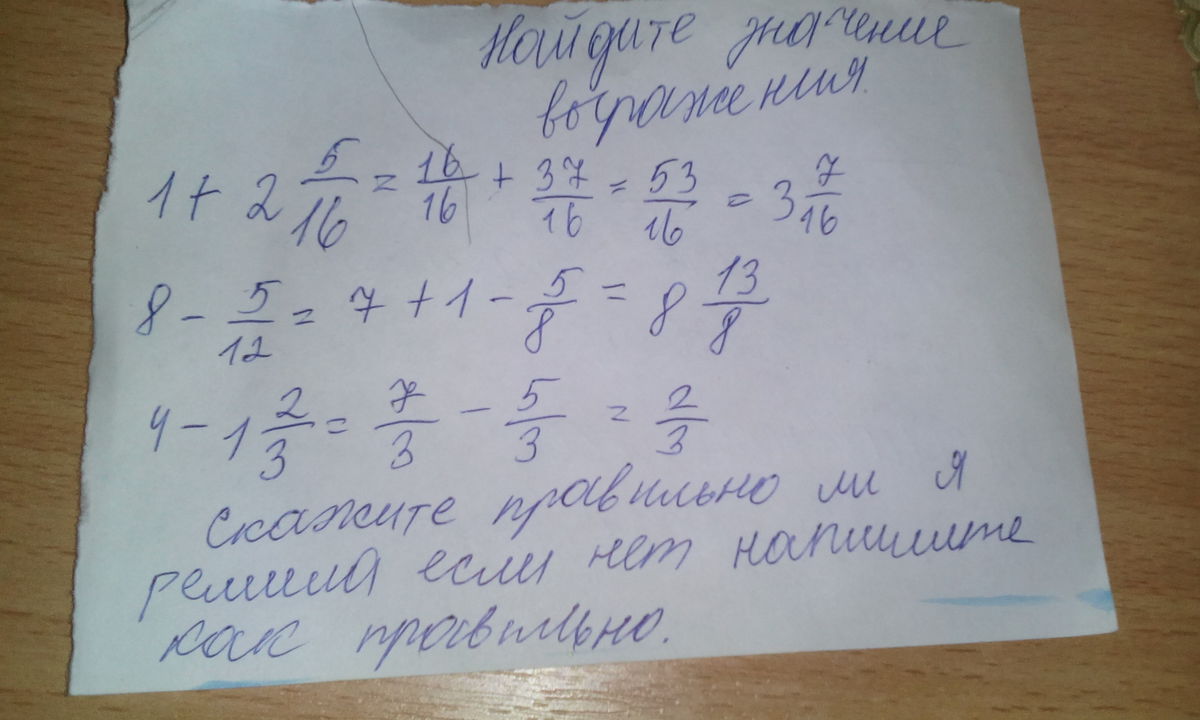 Найдите значение
выражения.
1 + 2 5/16 = 16/16 + 37/16 = 53/16 = 3 7/16
8 - 5/12 = 7 + 1 - 5/8 = 8 13/8
4 - 1 2/3 = 7/3 - 5/3 = 2/3
скажите правильно ли я
решила если нет напишите
как правильно.